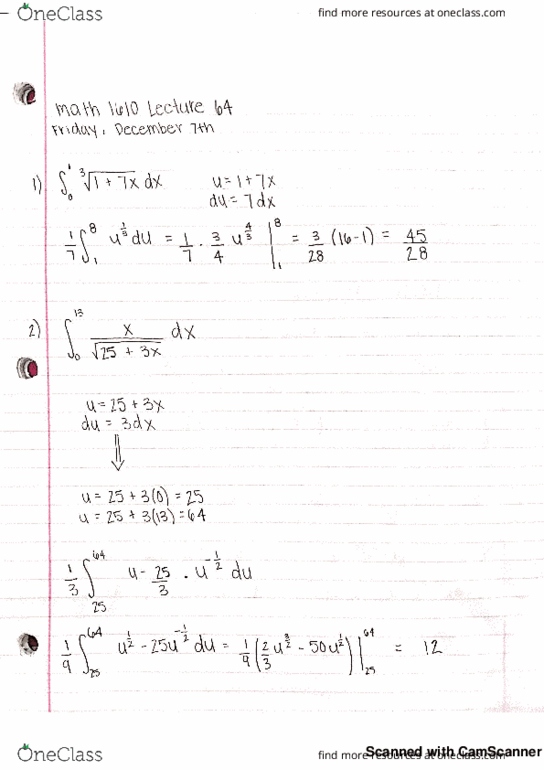 OneClass
find more resources at oneclass.com
math 1610 Lecture 64
Friday, December 7th
1) ∫₀¹ ∛(1 + 7x) dx    u = 1 + 7x
du = 7dx
1/7 ∫₁⁸ u^(1/3) du = 1/7 · 3/4 u^(4/3) |₁⁸ = 3/28 (16-1) = 45/28
2) ∫₀¹³ x/√(25 + 3x) dx
u = 25 + 3x
du = 3dx
⇓
u = 25 + 3(0) = 25
u = 25 + 3(13) = 64
1/3 ∫₂₅⁶⁴ u - 25/3 · u^(-1/2) du
1/9 ∫₂₅⁶⁴ u^(1/2) - 25u^(-1/2) du = 1/9 (2/3 u^(3/2) - 50u^(1/2)) |₂₅⁶⁴ = 12
OneClass
find more resources at oneclass.com
Scanned with CamScanner